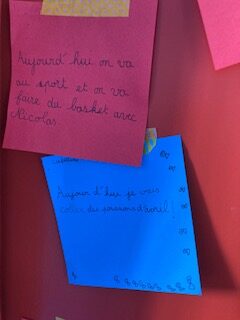 Aujourd'hui on va
au sport et on va
faire du basket avec
Nicolas.
Aujour d'hui je vais
coller des poissons d'avril!